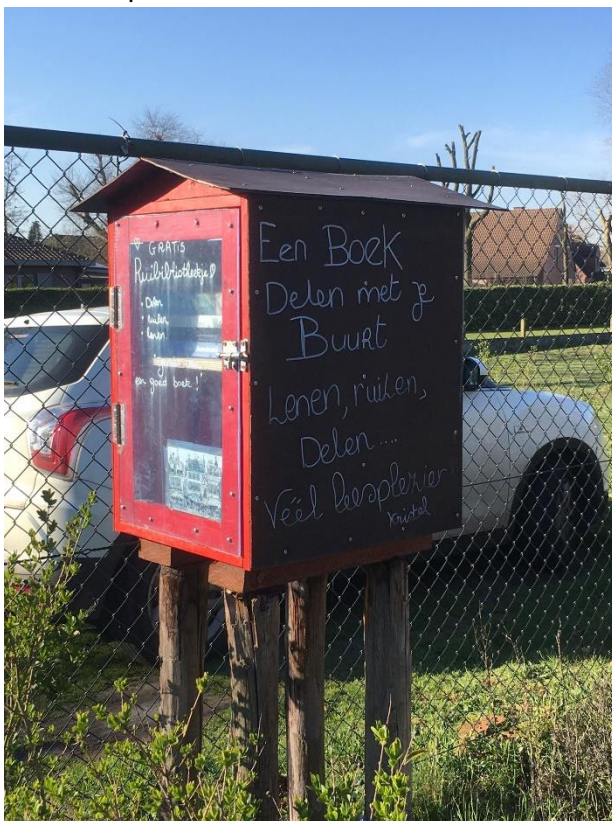 GRATIS
Ruilbibliotheekje
• Delen
• ruilen
• lenen
een goed boek!
Een BOEK
Delen met je
BUURT
Lenen, ruilen,
Delen....
Veel leesplezier
Kristel